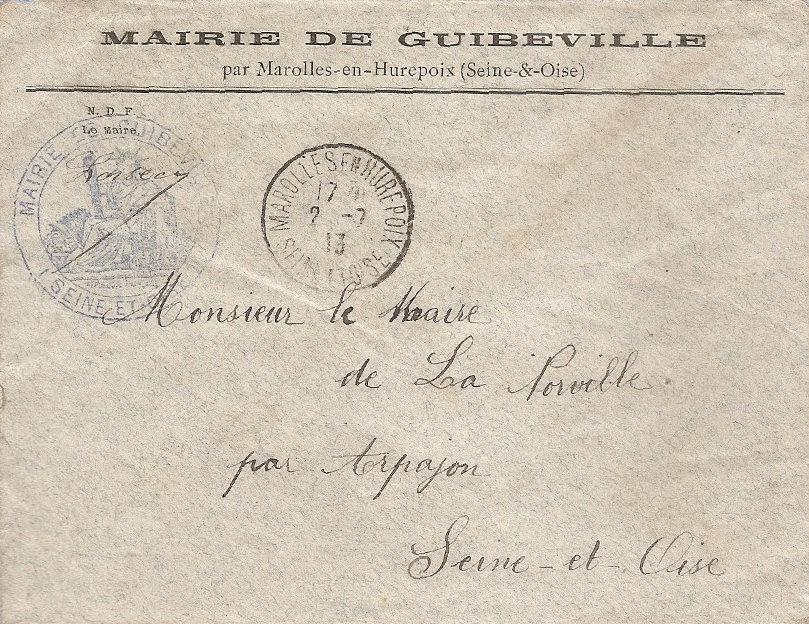 MAIRIE DE GUIBEVILLE
par Marolles-en-Hurepoix (Seine-&-Oise)
N. D. F.
Le Maire,
MAIRIE DE GUIBEVILLE
SEINE-ET-OISE
MAROLLES EN HUREPOIX
17
2 -7
13
SEINE ET OISE
Monsieur le Maire
de La Norville
par Arpajon
Seine-et-Oise